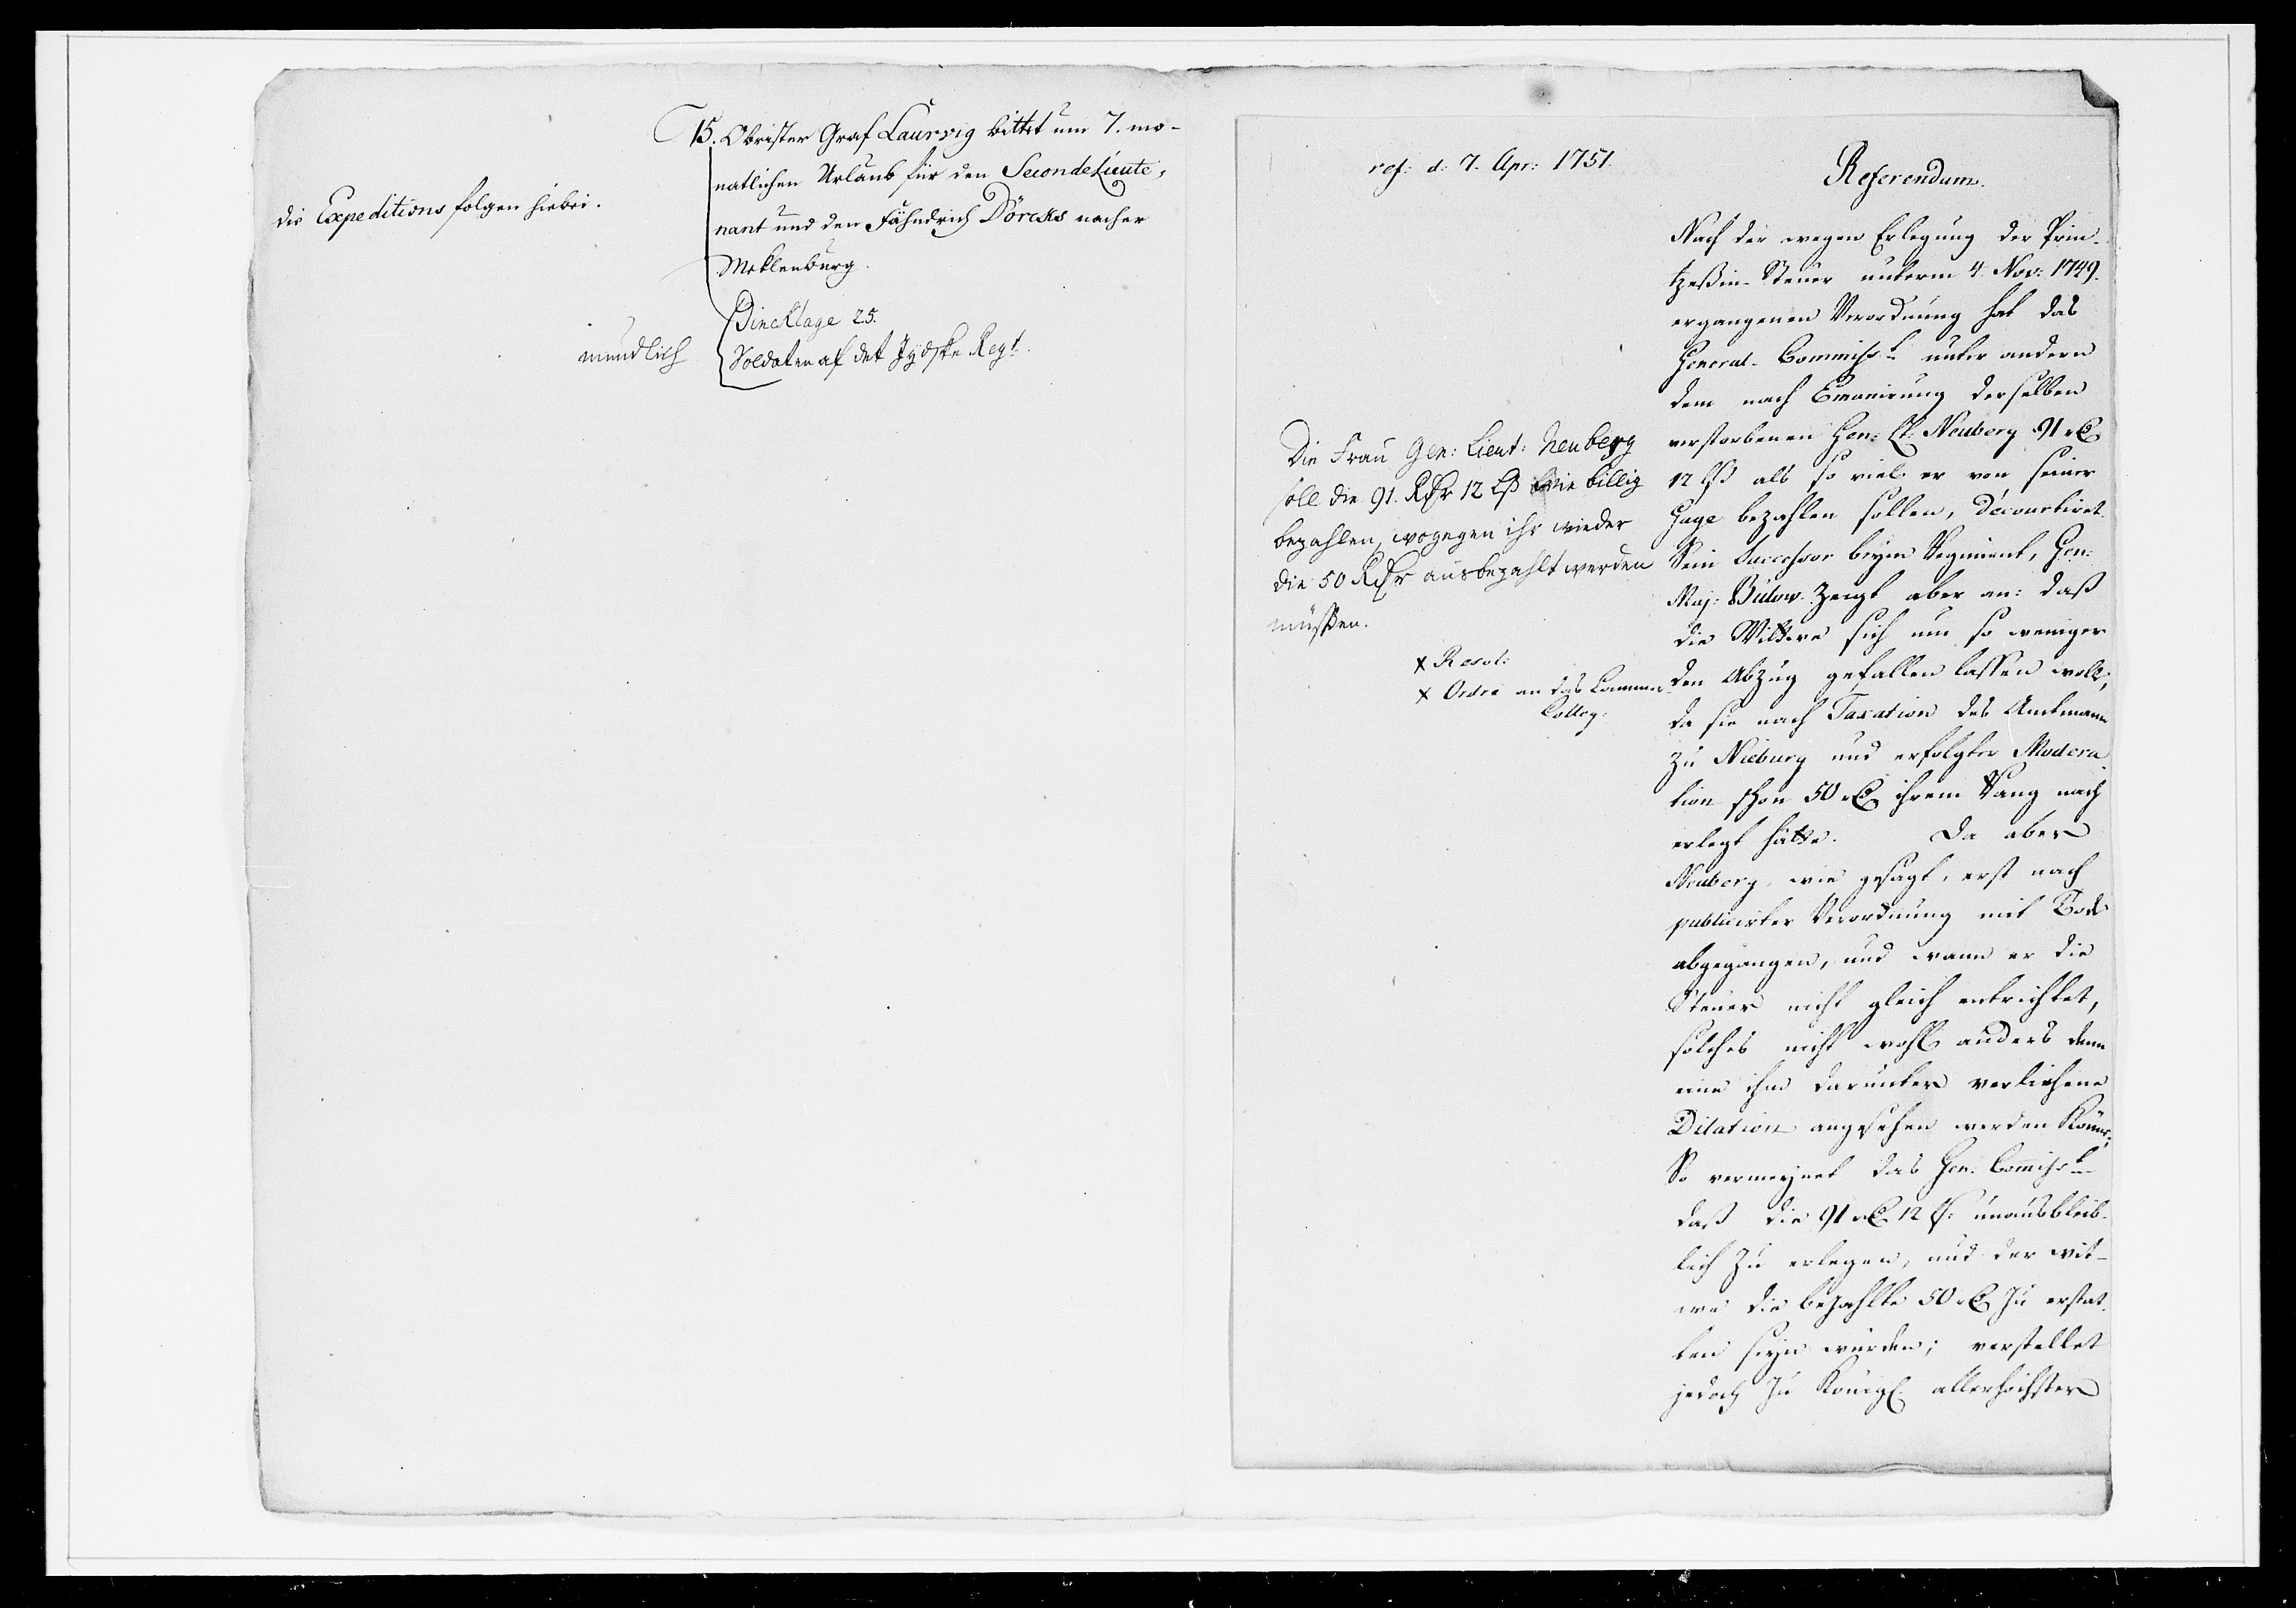 15. Obrister Graf Laurvig bittet um 7. mo-
natlichen Urlaub für den SecondeLieute-
nant und den Fähndrich Dörcks nacher
Meklenburg.
die Expeditions folgen hiebei.
Dincklage 25.
mundlich
Soldaten af det Jydske Regt.
ref: d: 7. Apr: 1751.
Referendum.
Nach der wegen Erlegung der Prin-
tzeßin-Steuer unterm 4. Nov: 1749.
ergangenen Verordnung hat das
General-Commisst unter andern
dem nach Emanirung derselben
verstorbenen Gen: Lt: Neuberg 91 Rd
12 ß als so viel er von seiner
Gage bezahlen sollen, décourtiret.
Sein Successor beym Regiment, Gen:
Maj: Bülow zeigt aber an: daß
die Wittwe sich um so weniger
den Abzug gefallen lassen woll,
da sie nach Taxation des Amtmann
zu Nieburg und erfolgter Modera
tion schon 50 Rd ihrem Rang nach
erlegt hätte. Da aber
Neuberg, wie gesagt, erst nach
publicirter Verordnung mit Tode
abgegangen, und wann er die
Steuer nicht gleich entrichtet,
solches nicht wohl anders denn
eine ihm darunter verliehene
Dilation angesehen werden könne;
So vermeynet das Gen: Commisst
daß die 91 Rd 12 ß: unausbleib-
lich zu erlegen, und der wit-
we die bezahlte 50 Rd zu erstat-
ten seyn würden; verstellet
jedoch zu Königl. allerhöchster
Die Frau Gen: Lieut: Neuberg
soll die 91. Rdr 12 Lß wie billig
bezahlen, wogegen ihr wieder
die 50 Rdr ausbezahlt werden
müßen.
x Resol:
x Ordre an das Cammer
Colleg: